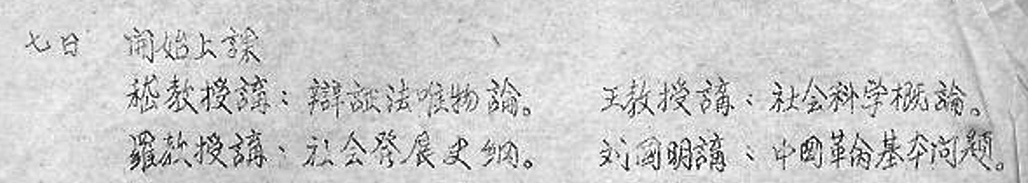 七日 開始上課
嵇教授講：辯証法唯物論。 王教授講：社会科学概論。
羅教授講：社会發展史綱。 刘國明講：中國革命基本问题。